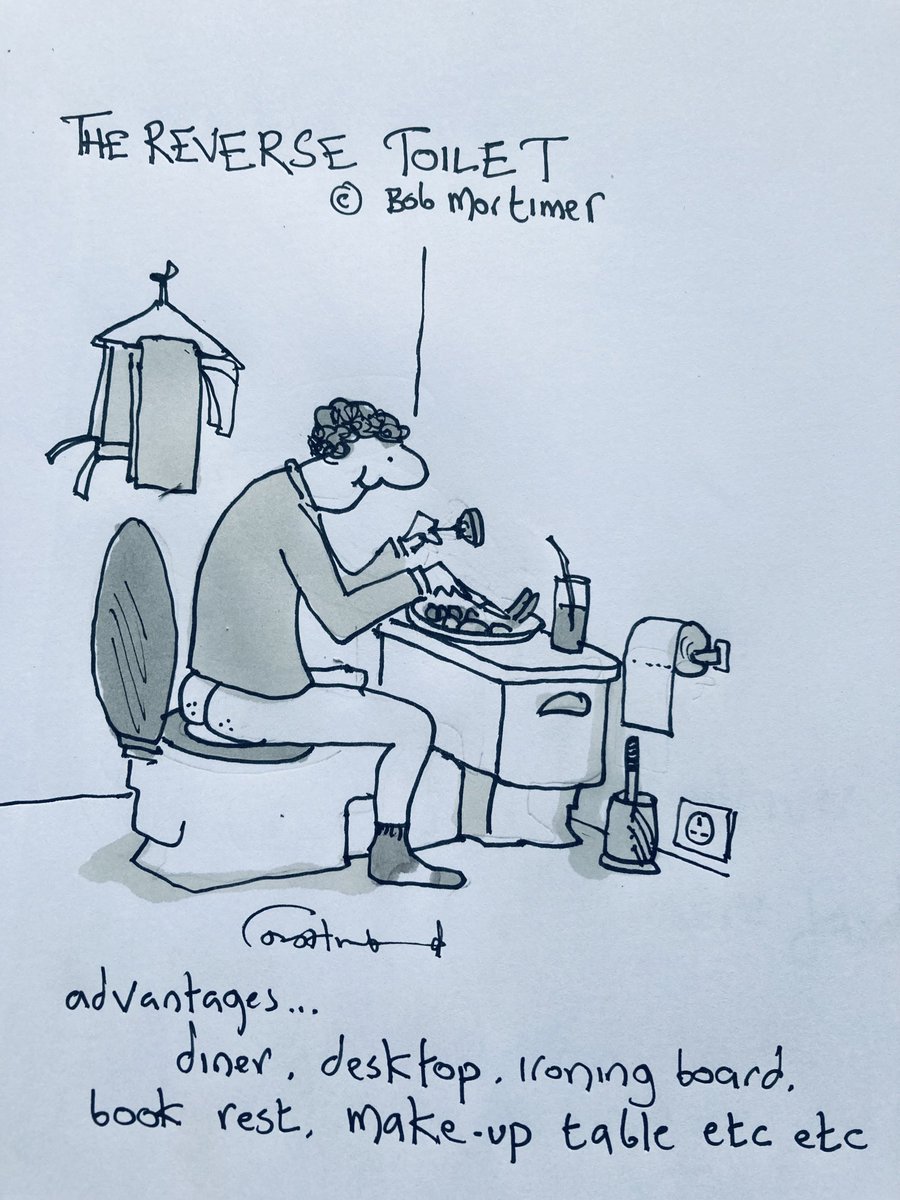 THE REVERSE TOILET
© Bob Mortimer
advantages...
diner, desktop, Ironing board,
book rest, make-up table etc etc